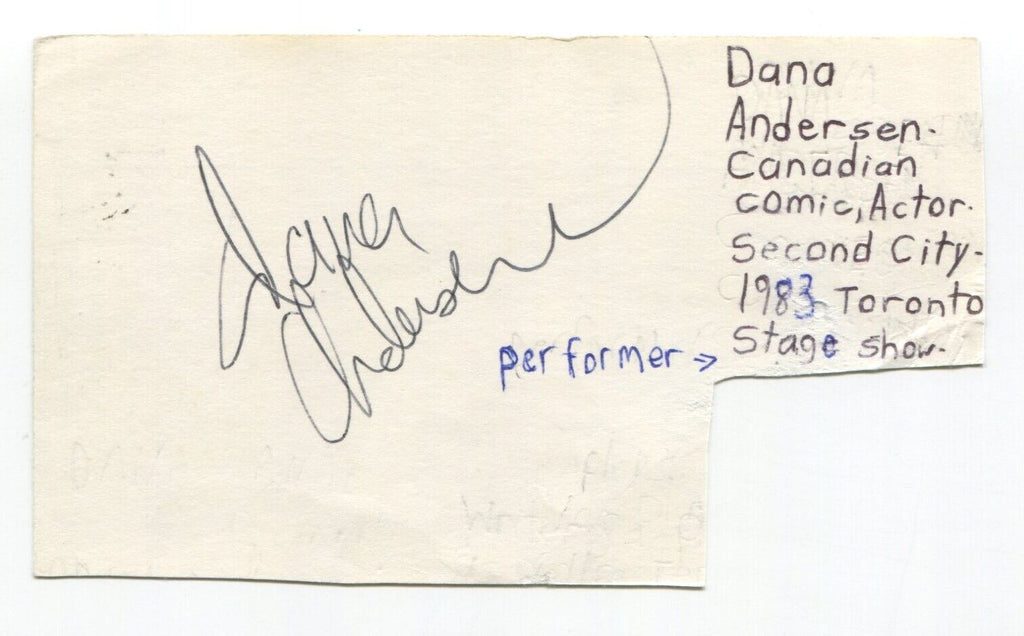 Dana
Andersen
Dana
Andersen.
Canadian
comic, Actor.
Second City-
1983 Toronto
Stage show.
performer →